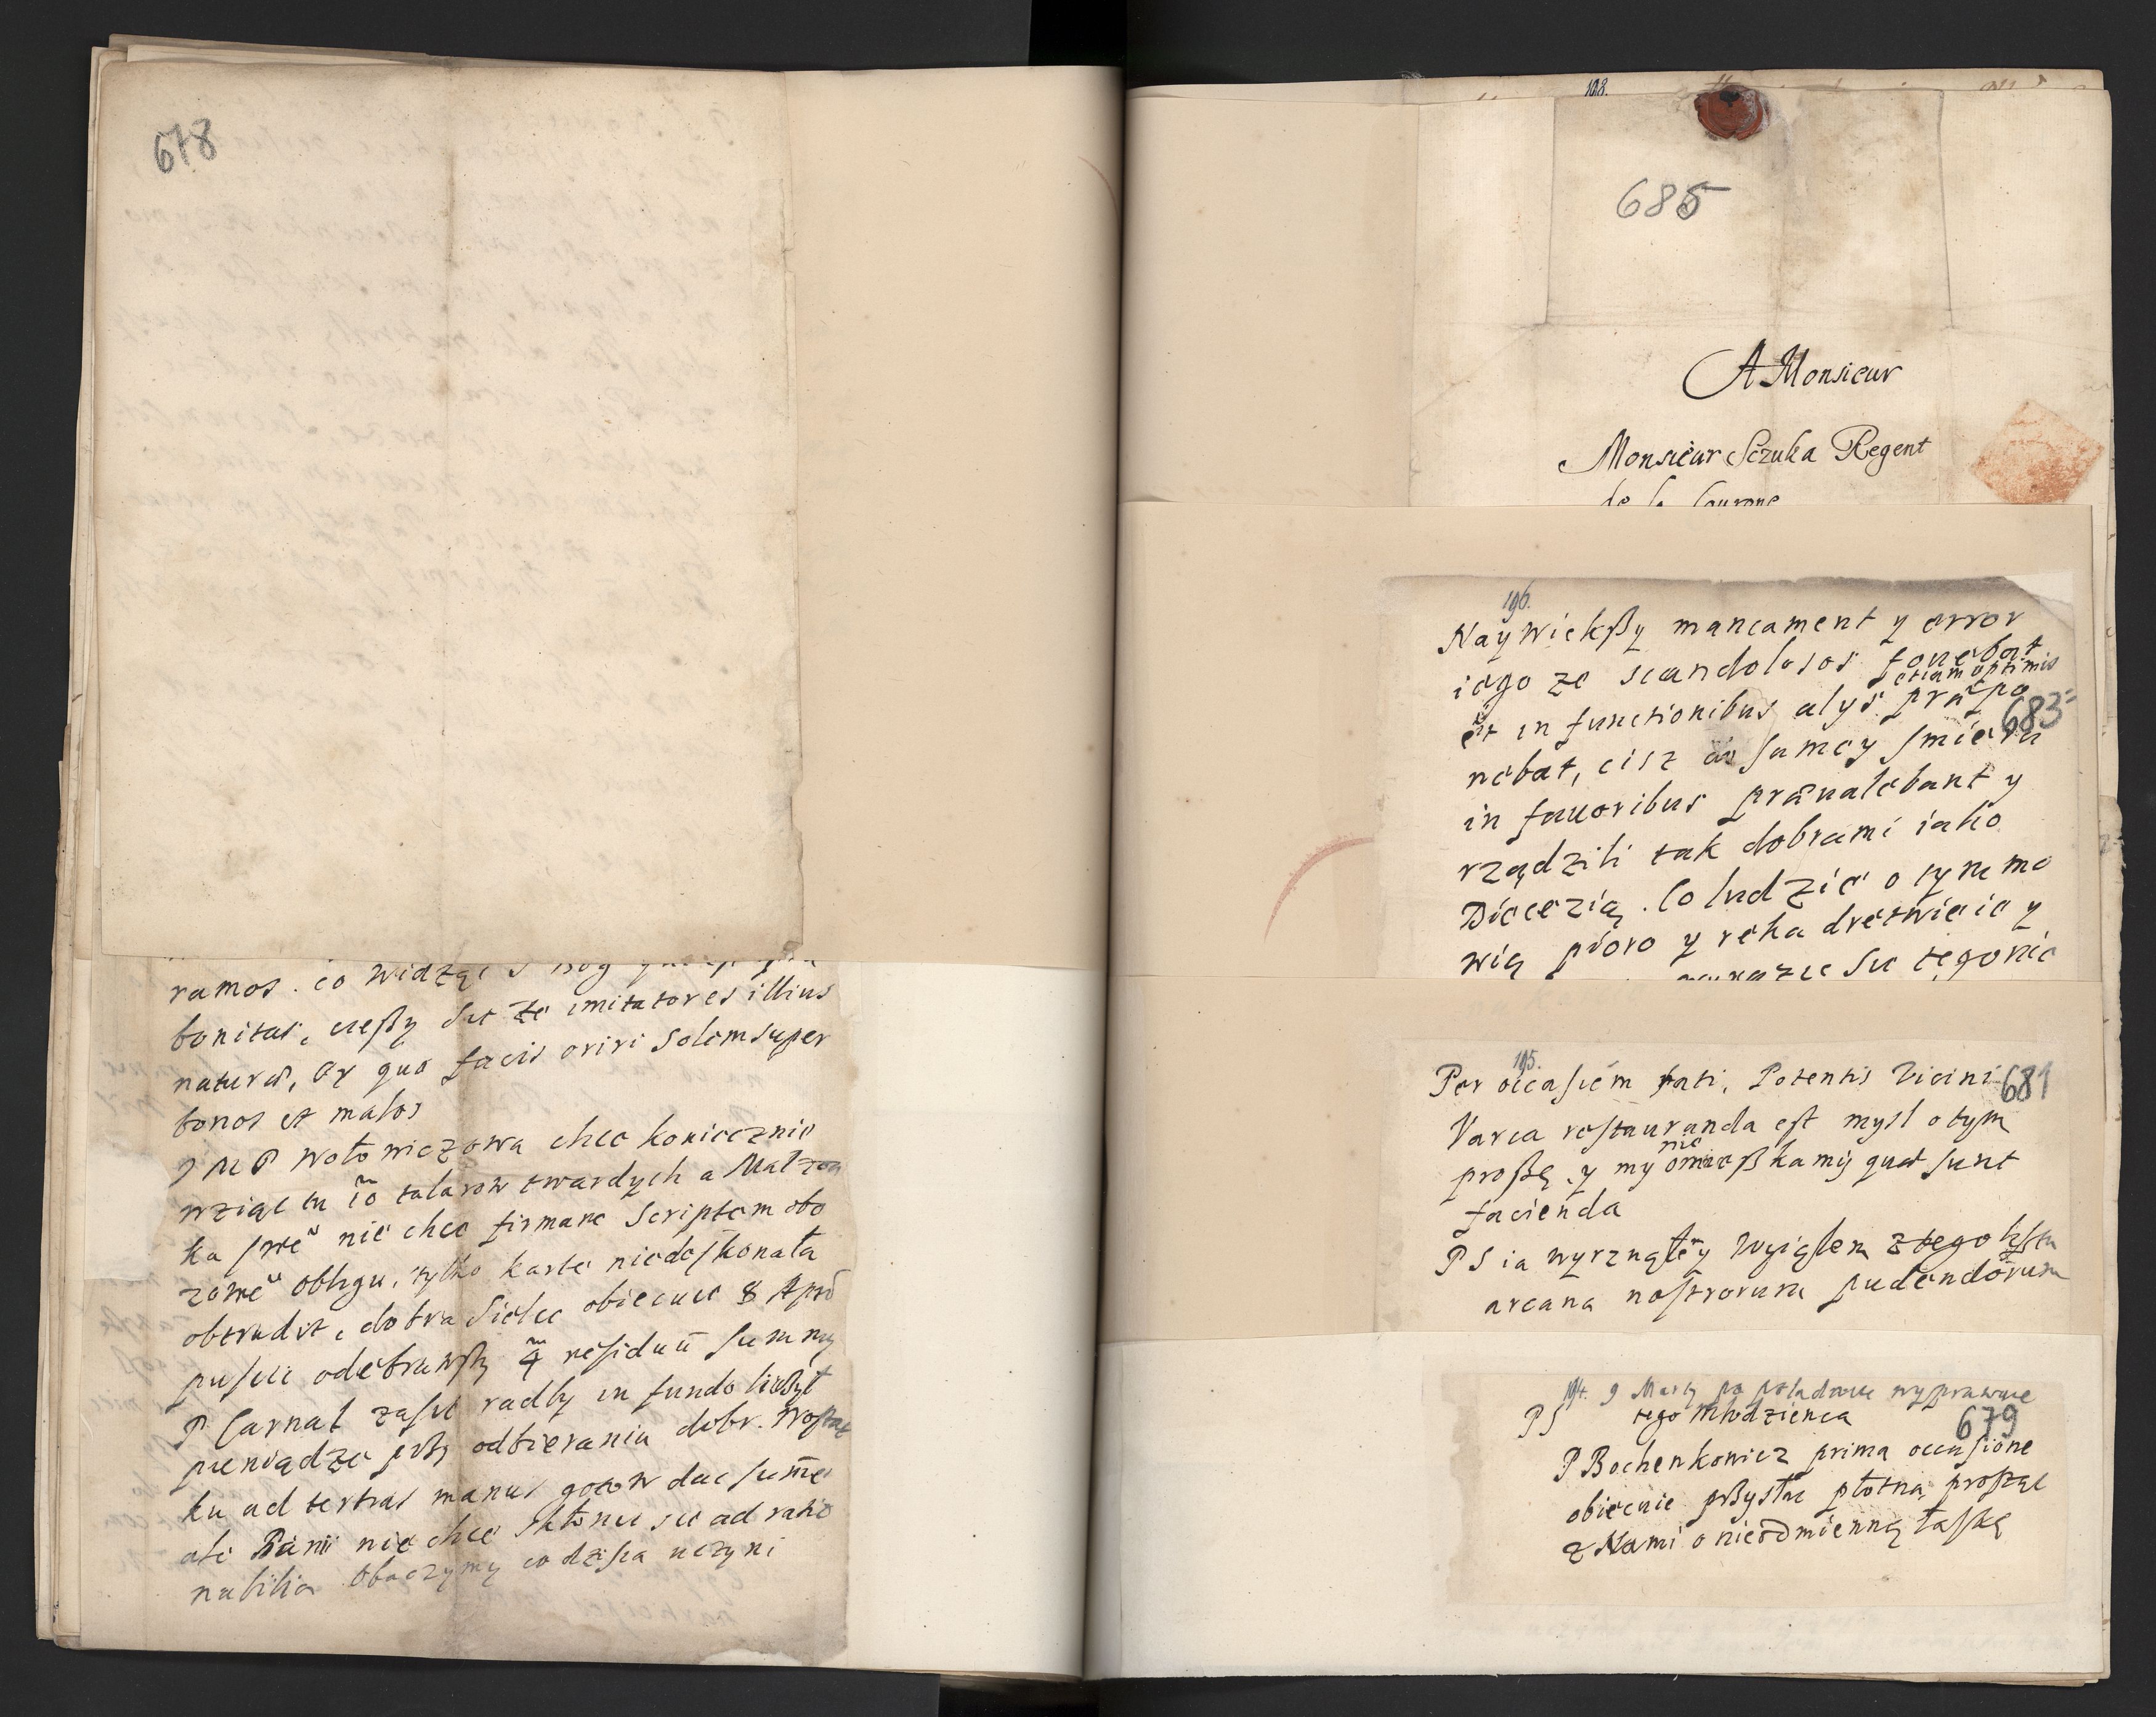 678
ramos. co widząc
bonitat, cieszy się że imitatores illius
natura, qui facis oriri solem super
bonos et malos
JMP Wołowiczowa chce koniecznie
wziąć tu 10 talarow twardych a Małzon
ka swe nie chce firmare Scriptem obo
obligu, tylko karte niedoskonała
obtrudit, dobra Sielec obiecuie 8 Apr
puscic odebrawszy 4 residuu summy
P Carnal zasie radby in fundo liczył
pieniądze przy odbieraniu dobr.
ku ad tertias manus gotow dac summe
ale Pani nie chce skłonic sie ad ratio
nabilia obaczymy co dzisia uczyni
108.
685
A Monsieur
Monsieur Sczuka Regent
de la Couronne
196.
Naywiekszy mancament y error
iego ze scandolosos fouebat
etiam optimis
et in functionibus alys præpo
683
nebat, cisz do samey smierci
in fauoribus præualebant y
rządzili tak dobrami iako
Diocezią. Co ludzie o tym mo
wią pioro y reka dretwieie y
sie tego nie
195.
Per occasiem fati, Potentis Vicini
681
Varca restauranda est mysl o tym
nie
proszę, y my omieszkamy quæ sunt
facienda
PS ia wyrznąłem y wyiąłem z tego listu
arcana nostrorum pudendorum
194. 9 Marty po południu wyprawuie
PS tego młodzienca
679
P Bochenkowicz prima occasione
obiecuie przysłac płotna, prosząc
z Nami o nieodmienną łaskę